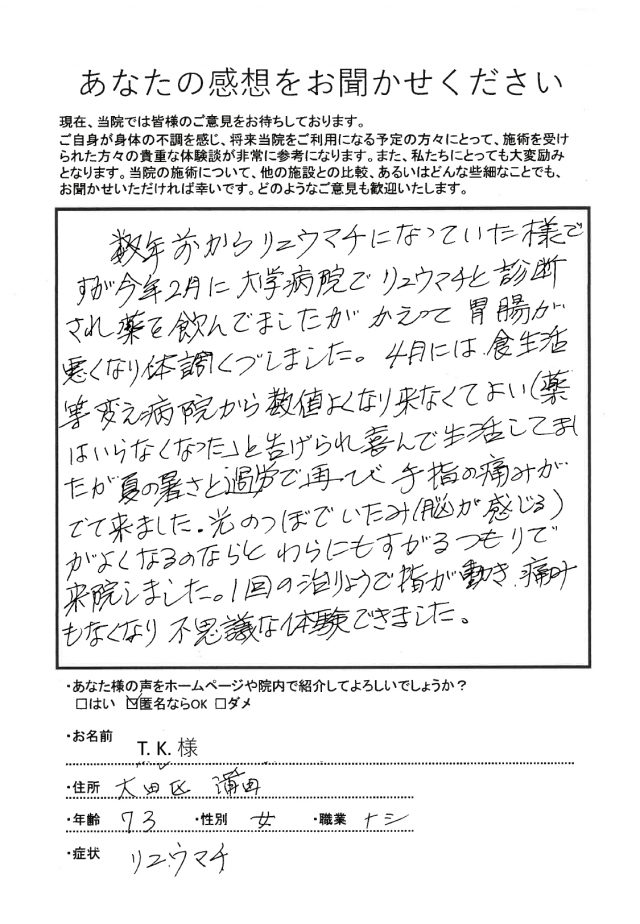 あなたの感想をお聞かせください
現在、当院では皆様のご意見をお待ちしております。
ご自身が身体の不調を感じ、将来当院をご利用になる予定の方々にとって、施術を受け
られた方々の貴重な体験談が非常に参考になります。また、私たちにとっても大変励み
となります。当院の施術について、他の施設との比較、あるいはどんな些細なことでも、
お聞かせいただければ幸いです。どのようなご意見も歓迎いたします。
数年前からリュウマチになっていた様で
すが今年2月に大学病院でリュウマチと診断
され薬を飲んでましたがかえって胃腸が
悪くなり体調くづしました。4月には食生活
等変え病院から数値よくなり来なくてよい(薬
はいらなくなった」と告げられ喜んで生活してまし
たが夏の暑さと過労で再び手指の痛みが
でて来ました.光のつぼでいたみ(脳が感じる)
がよくなるのならと わらにもすがるつもりで
来院しました。1回の治りょうで指が動き、痛み
もなくなり不思議な体験できました。
・あなた様の声をホームページや院内で紹介してよろしいでしょうか?
□はい ☑匿名ならOK □ダメ
・お名前 T.K.様
・住所 大田区 蒲田
・年齢 73 ・性別 女 ・職業 ナシ
・症状 リュウマチ